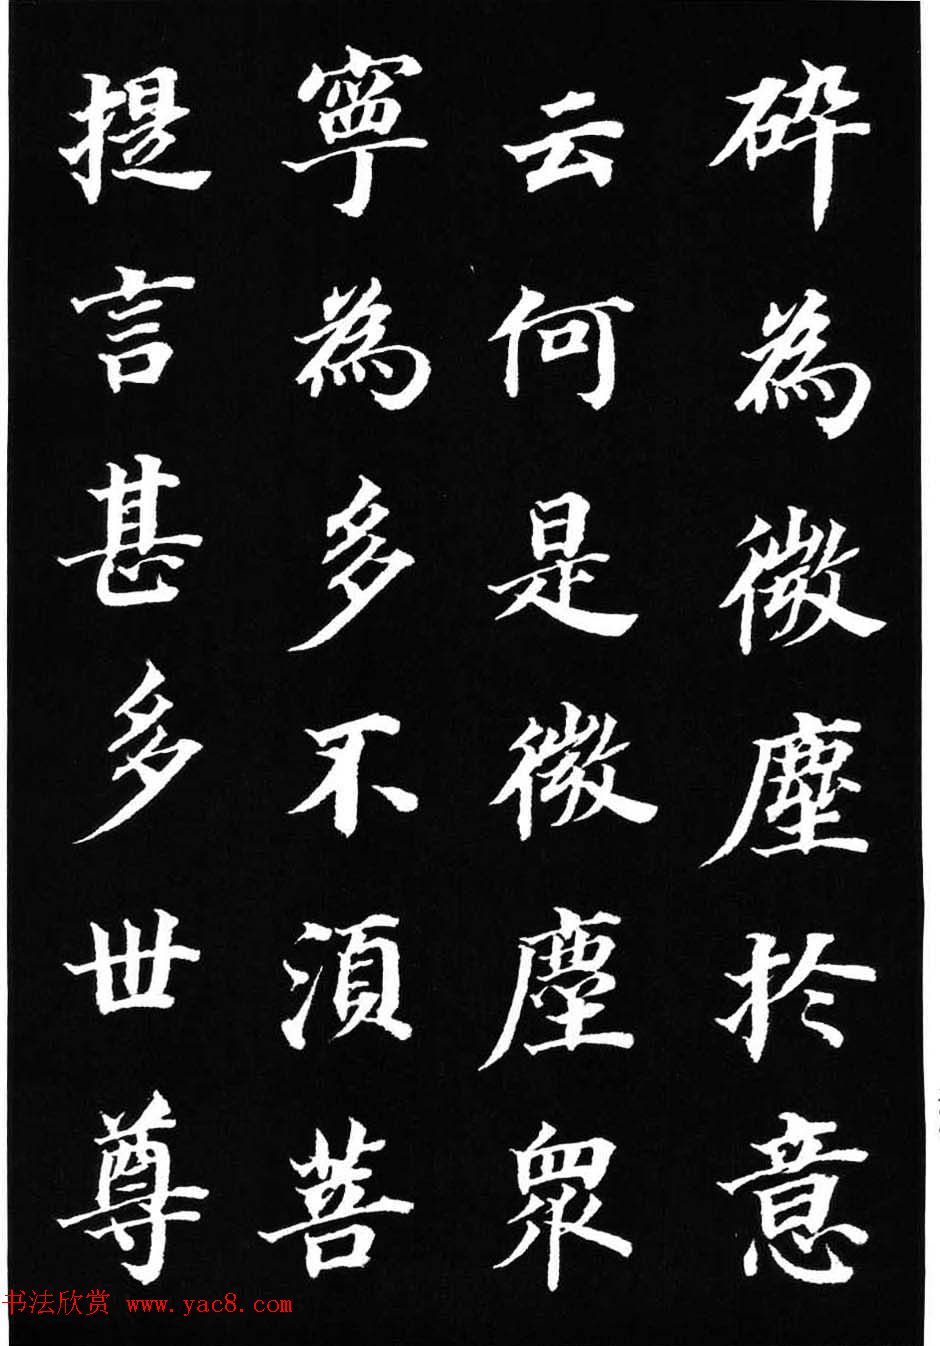 碎為微塵於意
云何是微塵眾
寧為多不須菩
提言甚多世尊
书法欣赏 www.yac8.com